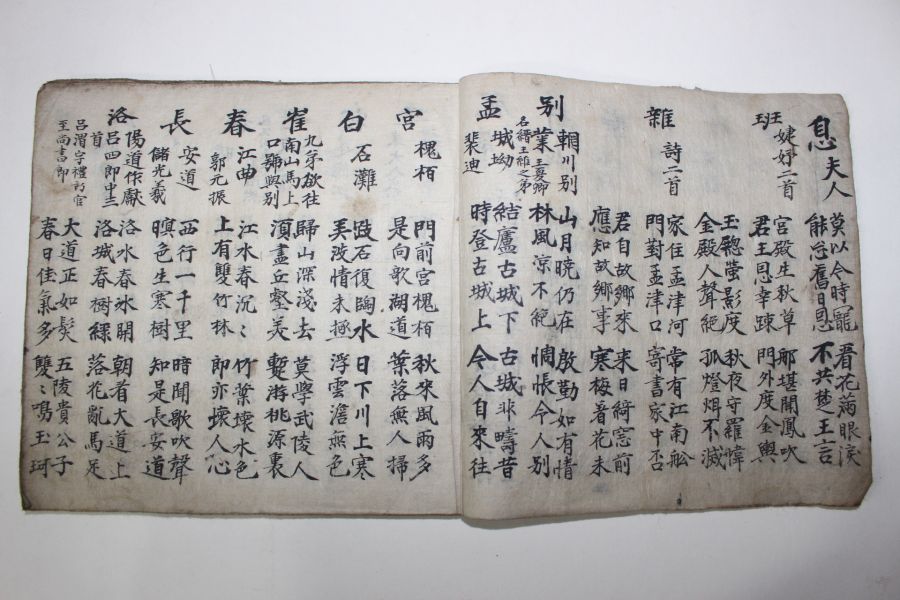 息夫人
莫以今時寵 看花滿眼淚
能忘舊日恩 不共楚王言
班婕妤二首
宮殿生秋草 那堪聞鳳吹
君王恩幸踈 門外度金輿
玉窓螢影度 秋夜守羅幃
金殿人聲絕 孤燈耿不滅
雜詩二首
家住孟津河 常有江南舩
門對孟津口 寄書家中否
君自故鄉來 來日綺窓前
應知故鄉事 寒梅著花未
別輞川別業 王夏卿
名縉王維之弟
山月曉仍在 慇勤如有情
林風涼不絕 惆悵令人別
孟城坳
裴迪
結廬古城下 古城非疇昔
時登古城上 今人自來往
宮槐栢
門前宮槐栢 秋來風雨多
是向歌湖道 葉落無人掃
白石灘
跂石復臨水 日下川上寒
弄波情未極 浮雲澹無色
崔九弟欲往
南山馬上
口號與別
歸山深淺去 莫學武陵人
須盡丘壑美 暫游桃源裏
春江曲
郭元振
江水春沉〻 竹葉壞水色
上有雙竹林 即亦壞人心
長安道
儲光羲
西行一千里 暗聞歌吹聲
暝色生寒樹 知是長安道
洛陽道作獻
呂四郎中
首
洛水春冰開 朝看大道上
洛城春樹綠 落花亂馬足
呂渭字禮部官
至尚書郎
大道正如髮 五陵貴公子
春日佳氣多 雙〻鳴玉珂